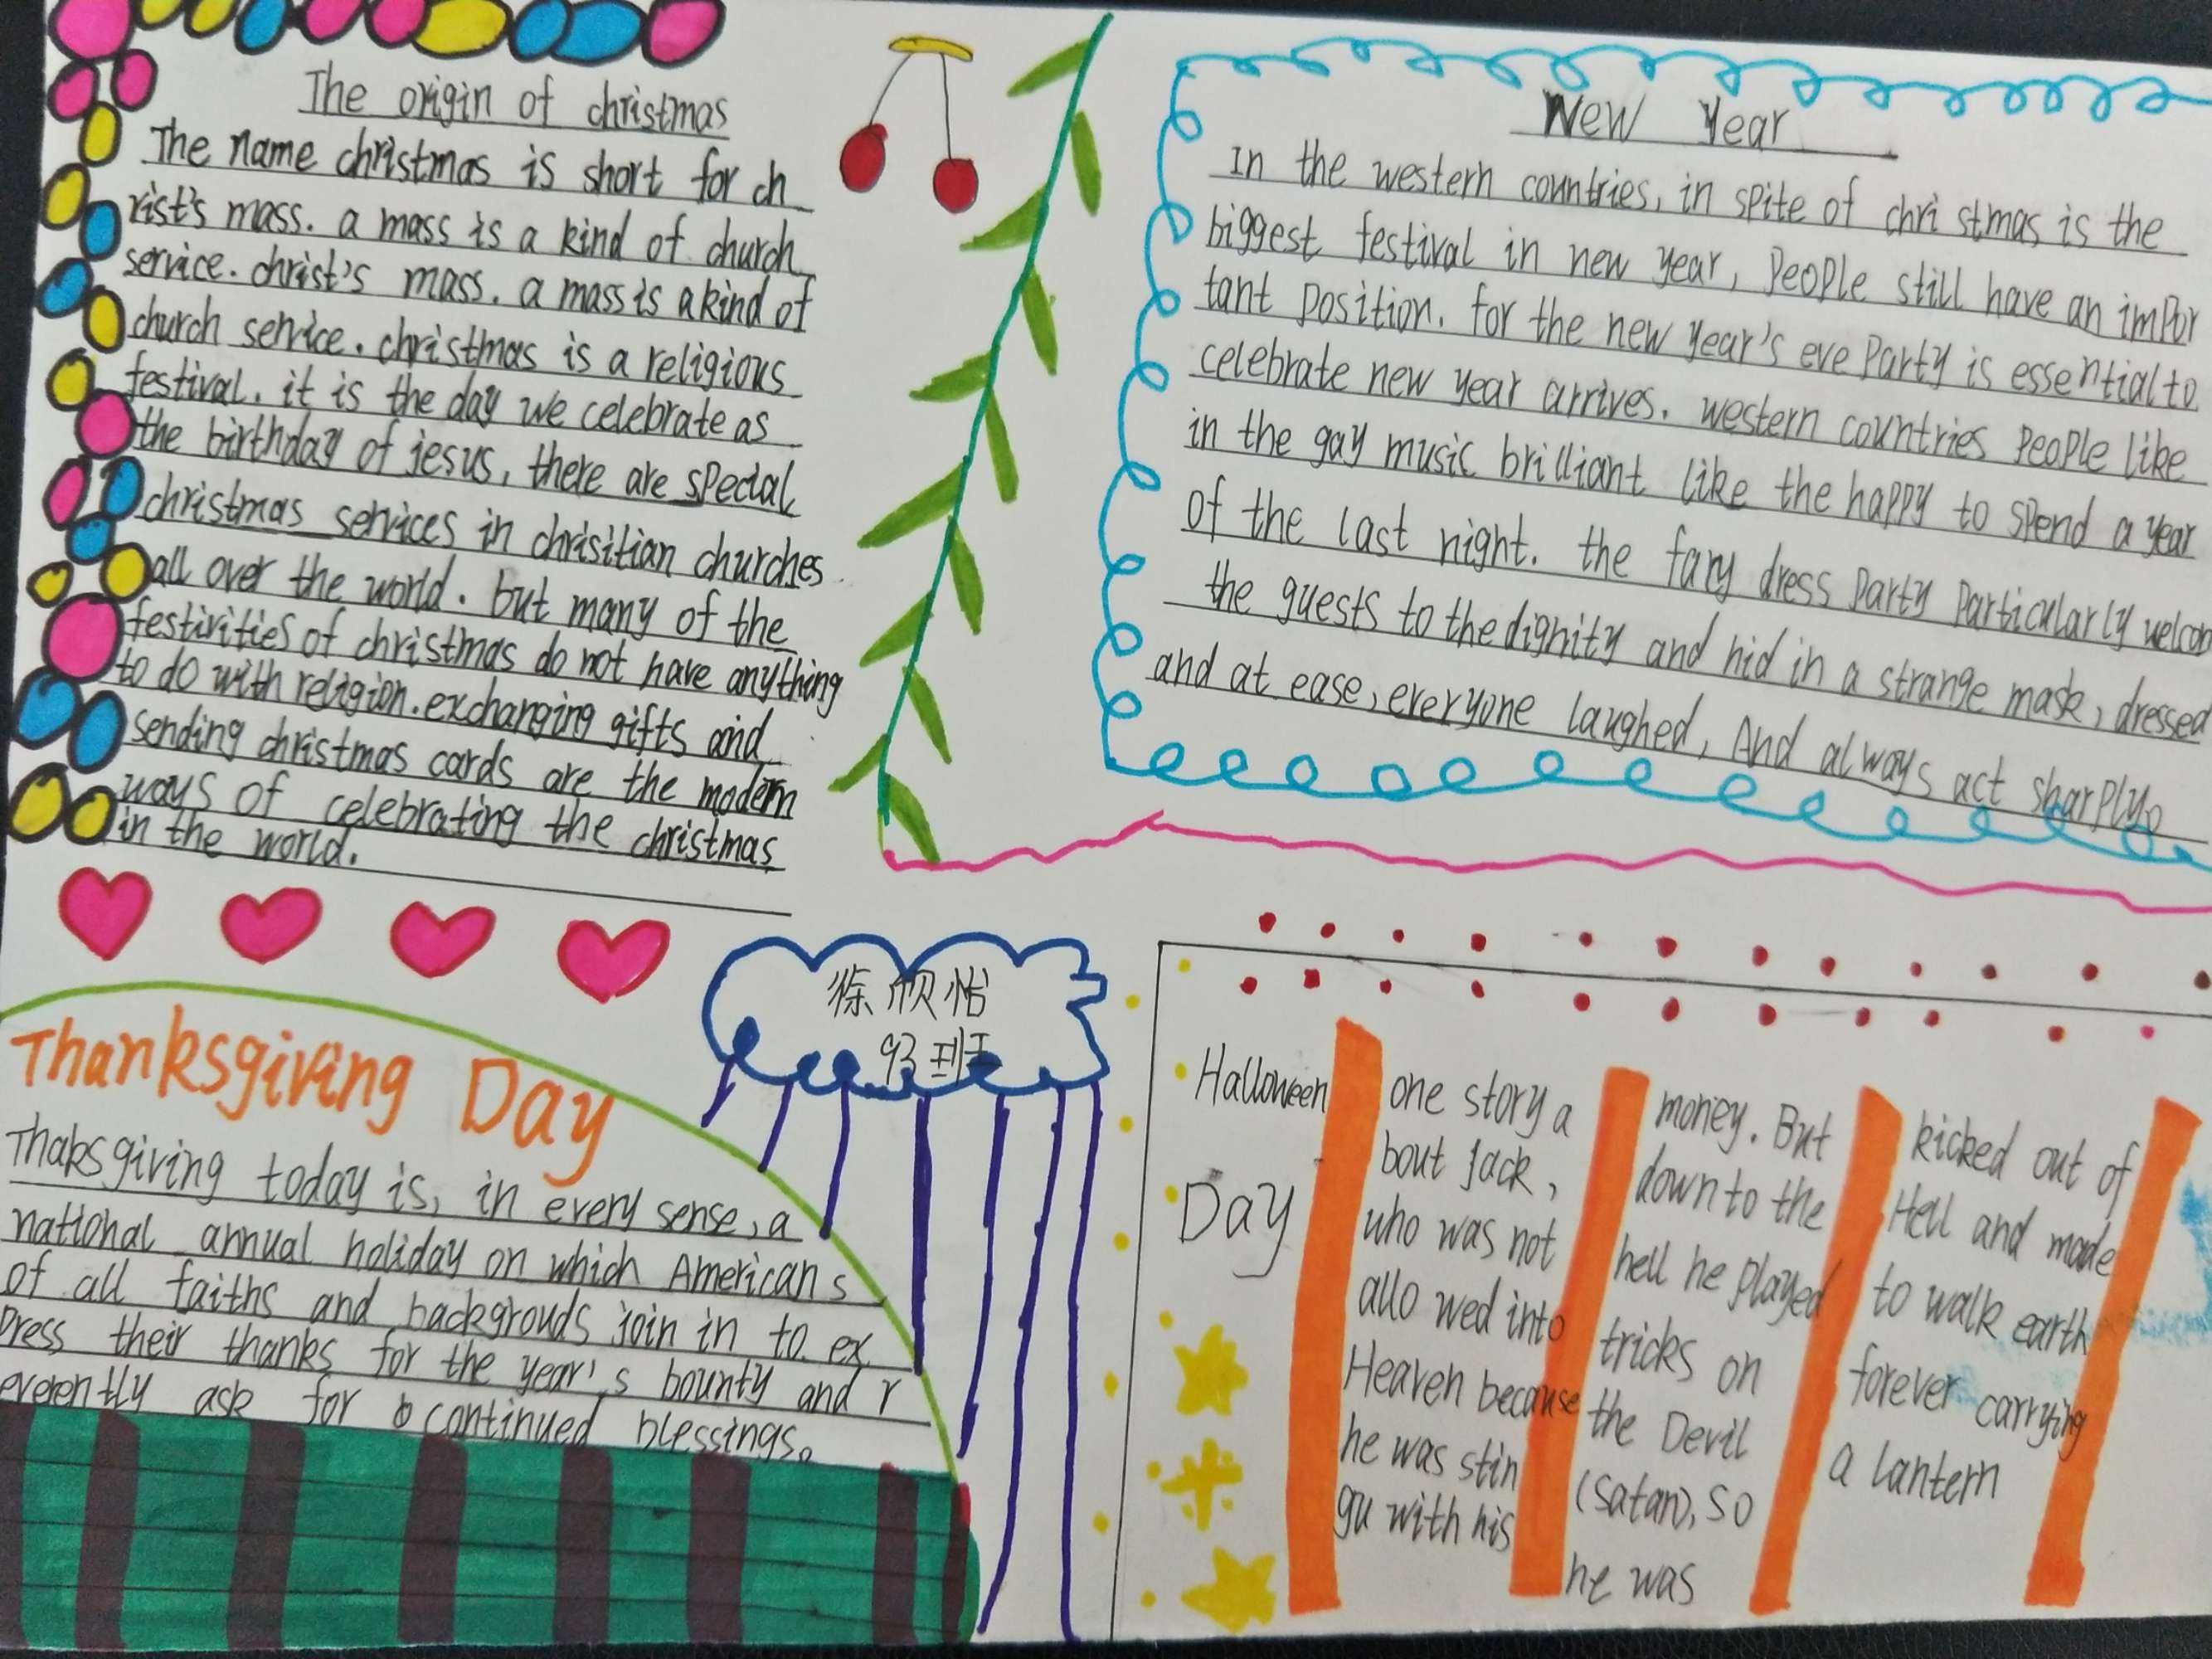 The origin of christmas
The name christmas is short for ch
rist's mass. a mass is a kind of church
service. christ's mass. a mass is a kind of
church service. christmas is a religious
festival. it is the day we celebrate as
the birthday of jesus, there are special
christmas services in chrisitian churches
all over the world. but many of the
festivities of christmas do not have anything
to do with religion. exchanging gifts and
sending christmas cards are the modern
ways of celebrating the christmas
in the world.
New Year
In the western countries, in spite of chri stmas is the
biggest festival in new year, people still have an impor
tant position. for the new year's eve party is essential to
celebrate new year arrives. western countries people like
in the gay music brilliant like the happy to spend a year
of the last night. the fany dress party particularly welcom
the guests to the dignity and hid in a strange mask, dressed
and at ease, everyone laughed, And always act sharply。
徐欣怡
93班
Thanksgiving Day
Thaksgiving today is, in every sense, a
national annual holiday on which Americans
of all faiths and backgrouds join in to ex
press their thanks for the year's bounty and r
everently ask for continued blessings。
Halloween
Day
one story a
bout Jack,
who was not
allo wed into
Heaven because
he was stin
gu with his
money. But
down to the
hell he played
tricks on
the Devil
(Satan), so
he was
kicked out of
Hell and made
to walk earth
forever carrying
a lantern